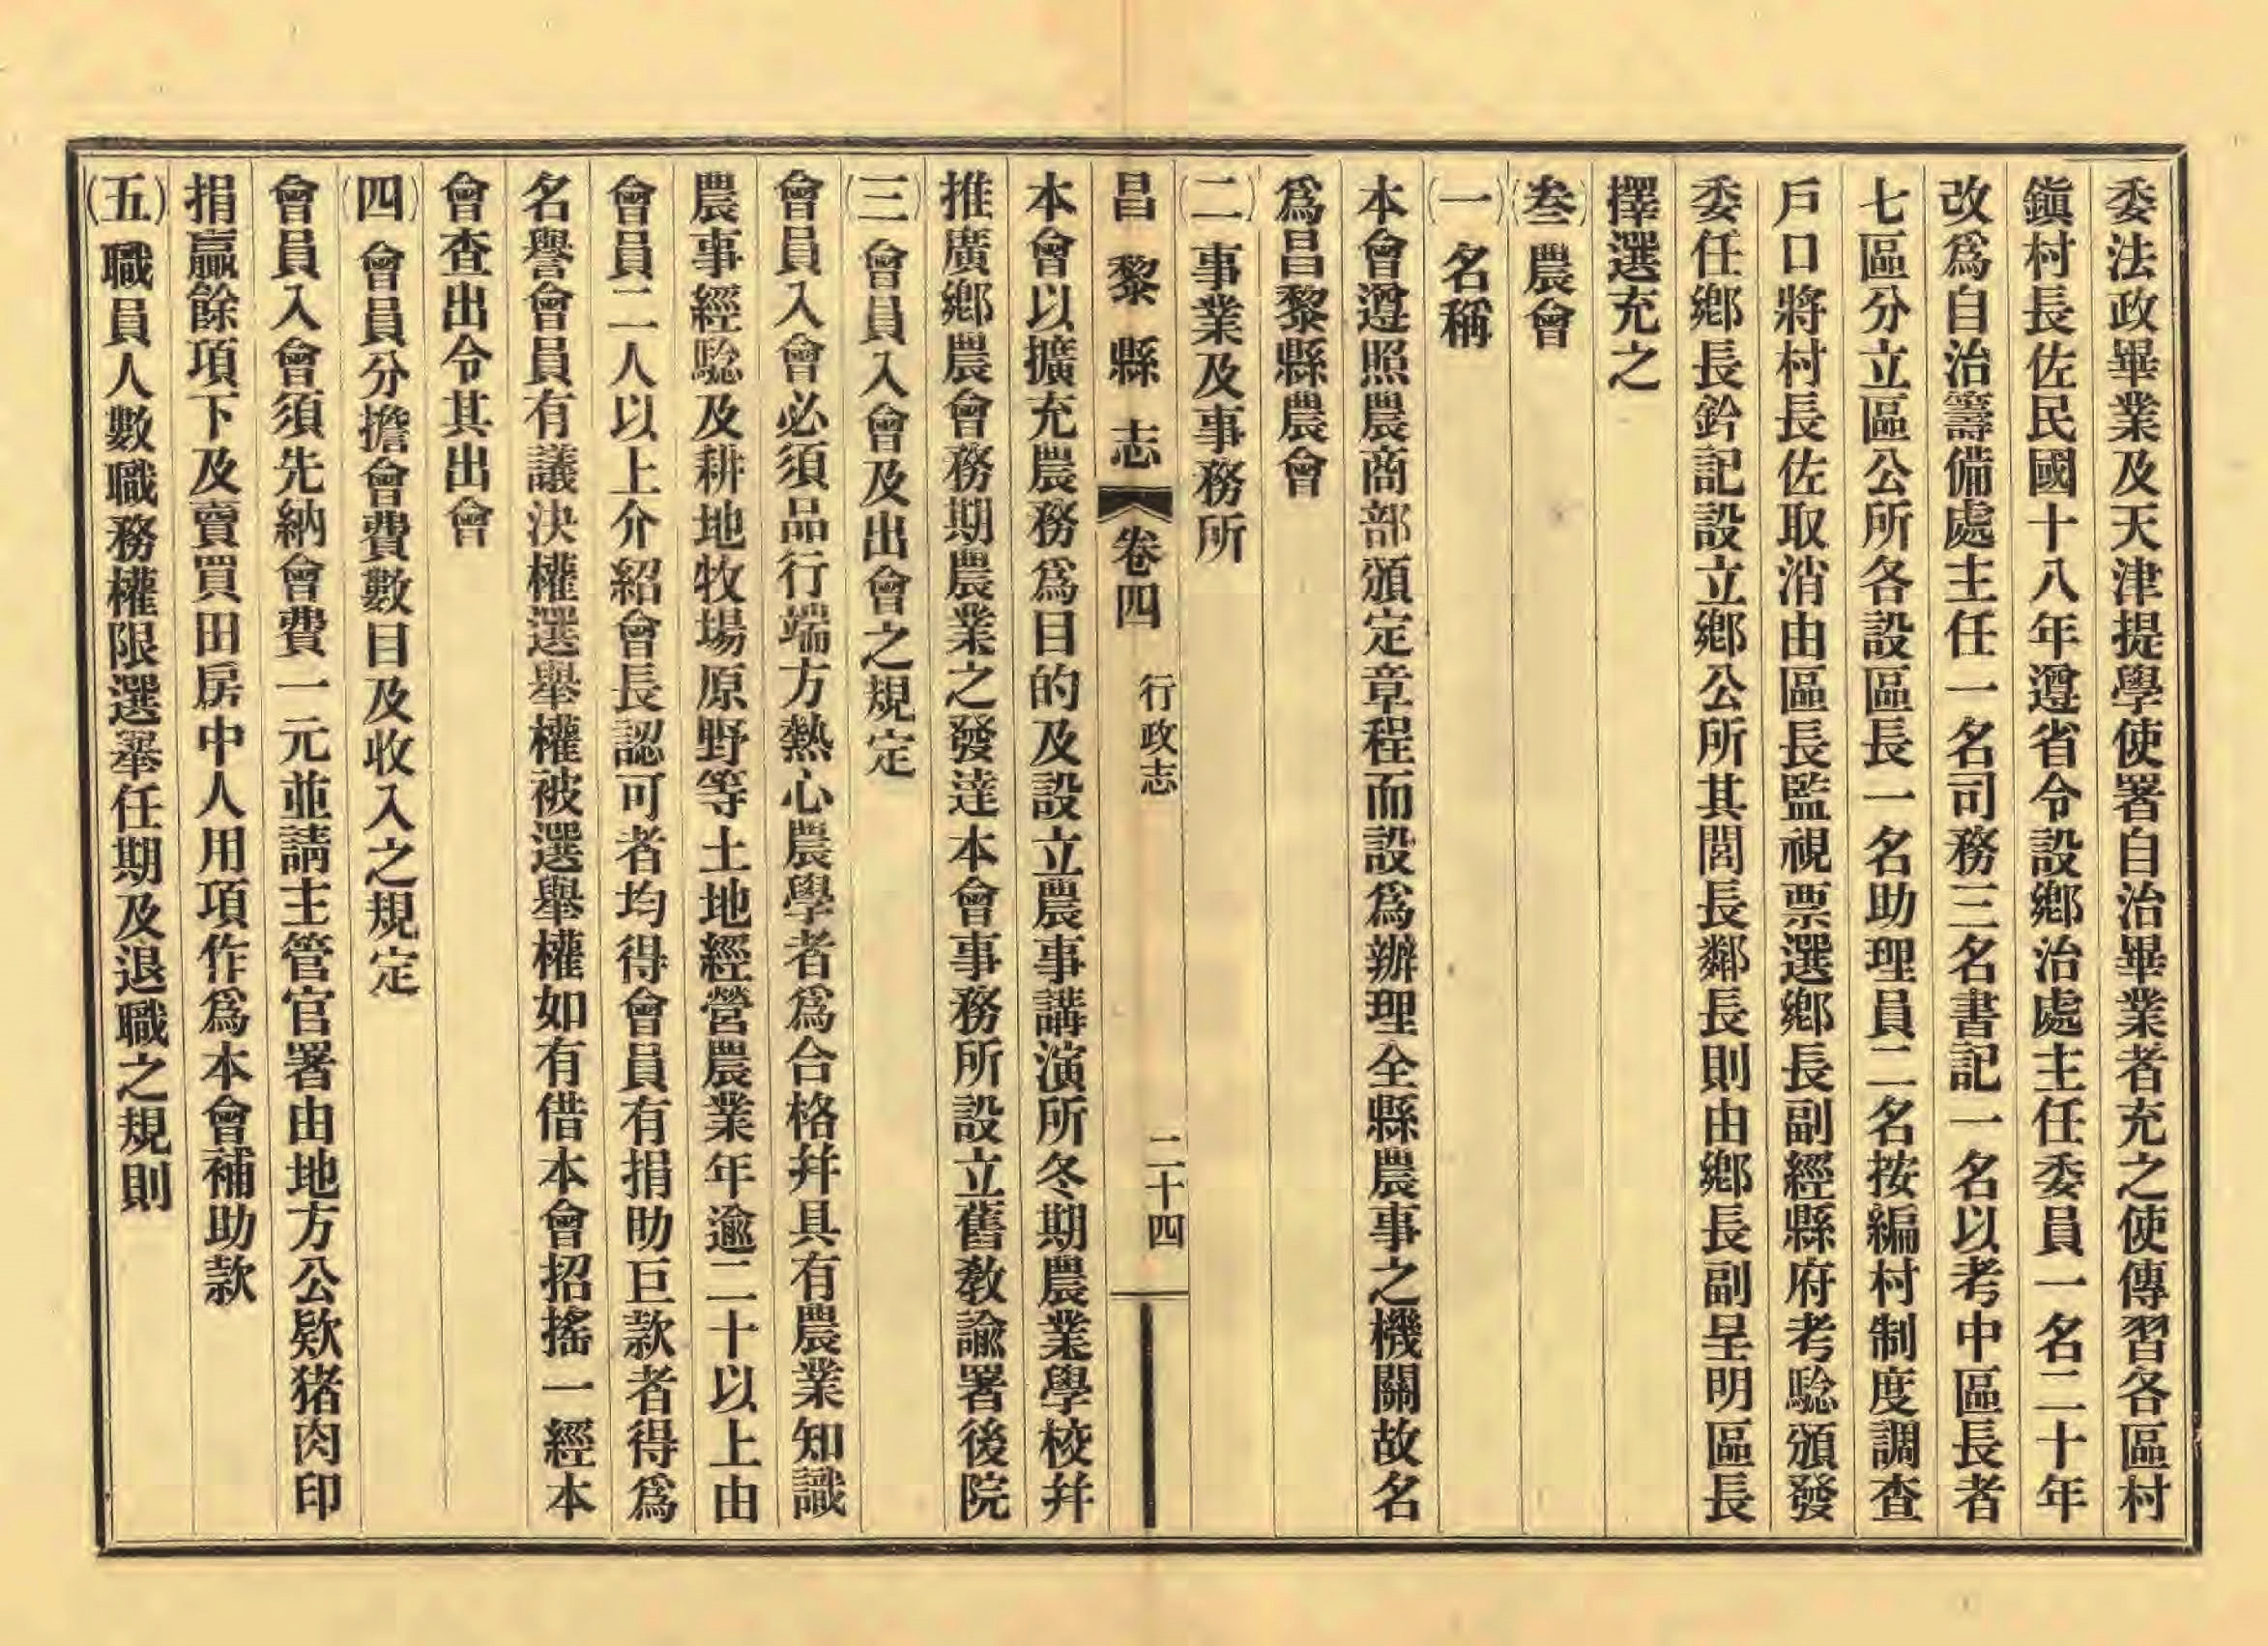 委法政畢業及天津提學使署自治畢業者充之使傳習各區村
鎭村長佐民國十八年遵省令設鄕治處主任委員一名二十年
改爲自治籌備處主任一名司務三名書記一名以考中區長者
七區分立區公所各設區長一名助理員二名按編村制度調查
戶口將村長佐取消由區長監視票選鄕長副經縣府考騐頒發
委任鄕長鈐記設立鄕公所其閭長鄰長則由鄕長副呈明區長
擇選充之
(叄)農會
(一)名稱
本會遵照農商部頒定章程而設爲辦理全縣農事之機關故名
爲昌黎縣農會
(二)事業及事務所
昌黎縣志 卷四 行政志 二十四
本會以擴充農務爲目的及設立農事講演所冬期農業學校幷
推廣鄕農會務期農業之發達本會事務所設立舊敎諭署後院
(三)會員入會及出會之規定
會員入會必須品行端方熱心農學者爲合格幷具有農業知識
農事經騐及耕地牧場原野等土地經營農業年逾二十以上由
會員二人以上介紹會長認可者均得會員有捐助巨款者得爲
名譽會員有議決權選舉權被選舉權如有借本會招搖一經本
會查出令其出會
(四)會員分擔會費數目及收入之規定
會員入會須先納會費一元並請主管官署由地方公欵猪肉印
捐贏餘項下及賣買田房中人用項作爲本會補助款
(五)職員人數職務權限選舉任期及退職之規則